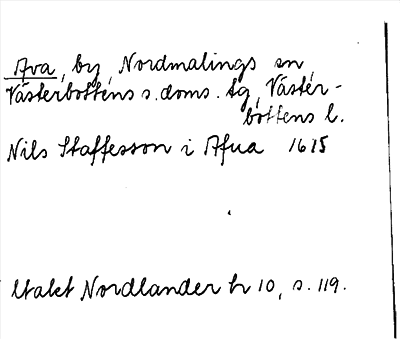 Ava, by, Nordmalings sn
Västerbottens s. doms. tg, Väster-
bottens l.
Nils Staffesson i Afua 1615
Utalet Nordlander hr 10, s. 119.